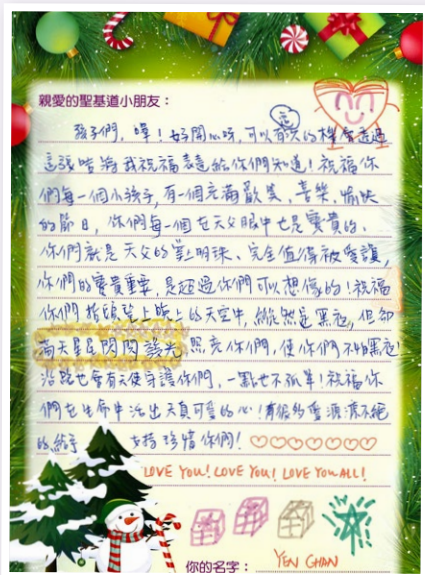 親愛的聖基道小朋友：
孩子們，嘩！好開心呀，可以有這的機會透過
這張咭將我祝福表達給你們知道！祝福你
們每一個小孩子，有一個充滿歡笑、喜樂、愉快
的節日，你們每一個在天父眼中也是寶貴的、
你們就是天父的掌上明珠、完全值得被愛護，
你們的寶貴重要，是超過你們可以想像的！祝福
你們抬頭望上晚上的天空中，縱然是黑夜，但卻
滿天星星閃閃發光照亮你們，使你們不怕黑夜！
沿路也會有天使守護你們，一點也不孤單！祝福你
們在生命中活出天真可愛的心！有很多愛源源不絕
的給予 支持珍惜你們！
LOVE YOU! LOVE YOU! LOVE YOU ALL!
你的名字： YEN CHAN